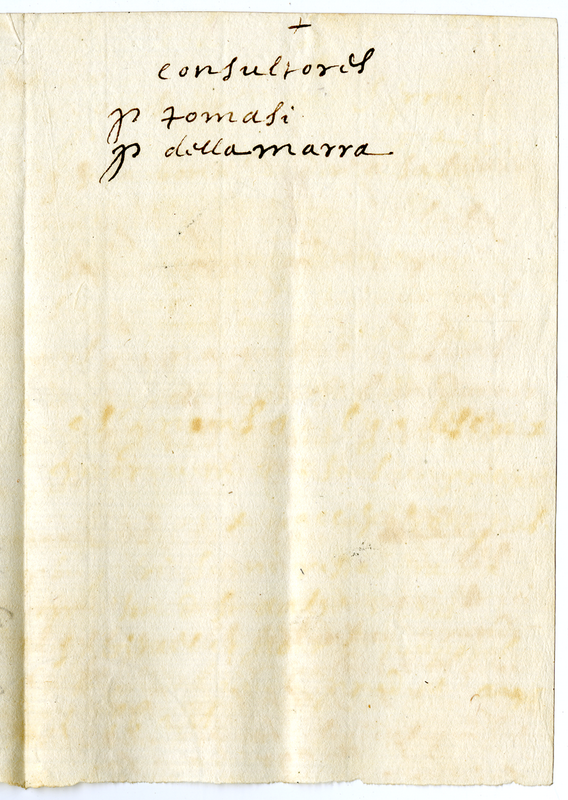 +
consultores
p tomasi
p della marra